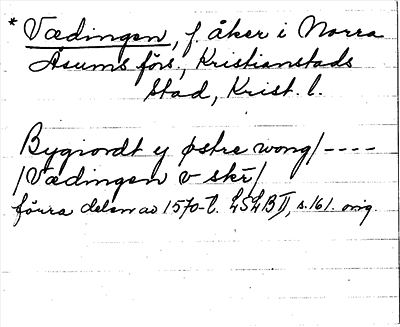 * Vædingen, f. åker i Norra
Åsums förs., Kristianstads
stad, Krist. l.
Bygiordt ÿ østre wong/----
/Vædingen v skr/
förra delen av 1570-t. LSLB II, s. 161. orig.